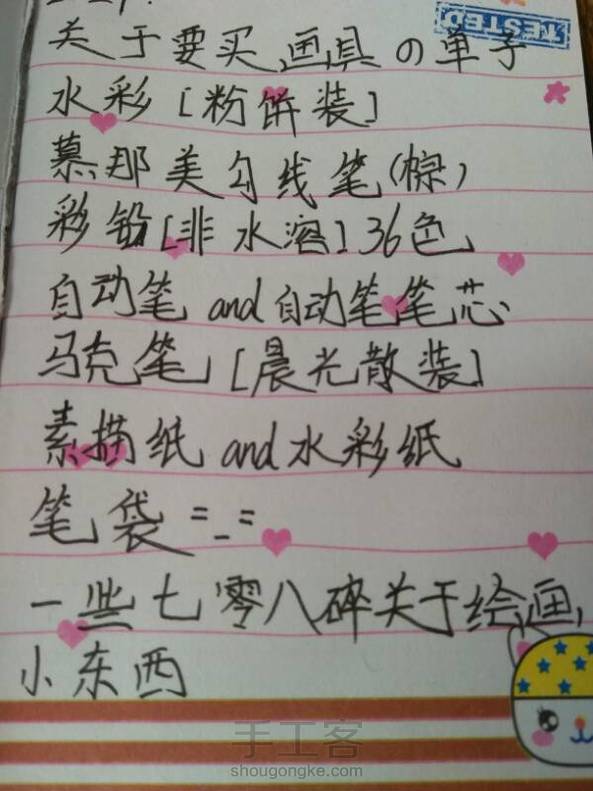 TESTED
关于要买画具の单子
水彩[粉饼装]
慕那美勾线笔(棕)
彩铅[非水溶]36色
自动笔and自动笔笔芯
马克笔[晨光散装]
素描纸and水彩纸
笔袋=_=
一些七零八碎关于绘画
小东西
手工客
shougongke.com